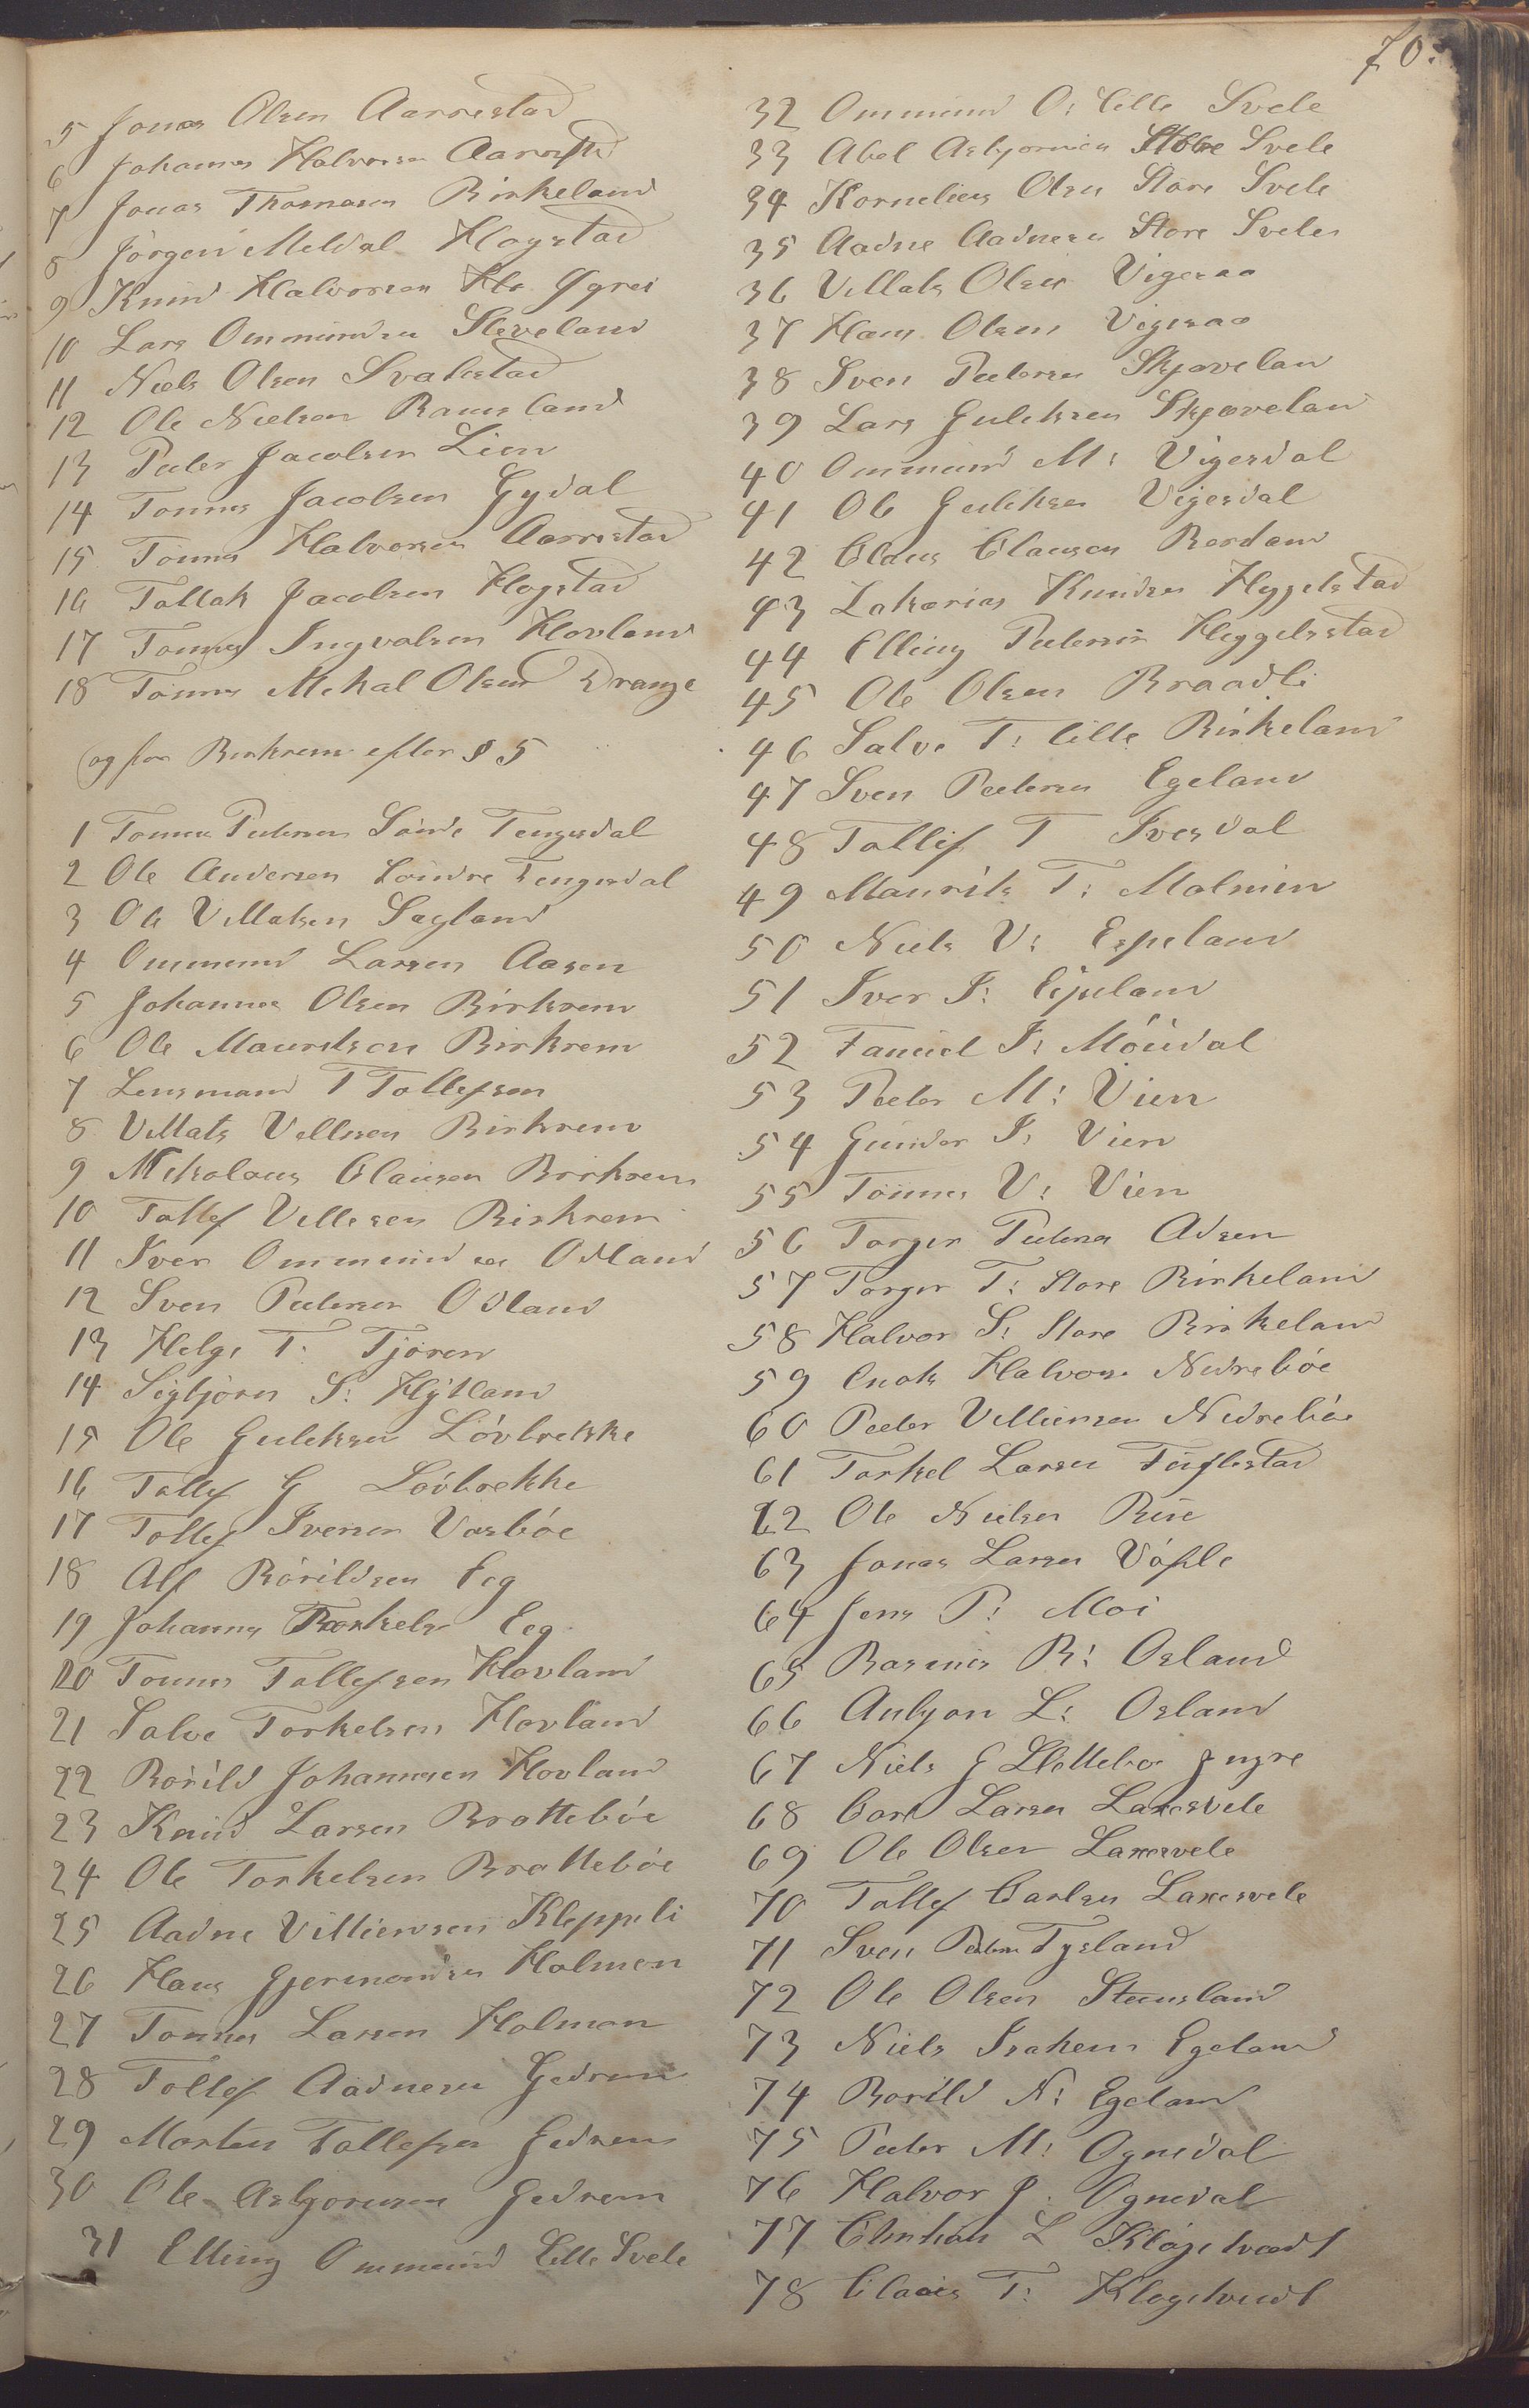 70.
5 Jonas Olsen Aarrestad
6 Johannes Halvorsen Aarrestd
7 Jonas Thomasen Birkeland
8 Jørgen Meldal Hogstad
9 Knud Halvorsen Ygrei
10 Lars Ommundsen Sleveland
11 Niels Olsen Svalestad
12 Ole Nielsen Ramsland
13 Peder Jacobsen Lien
14 Tønnes Jacobsen Gydal
15 Tønnes Halvorsen Aarrestad
16 Tollak Jacobsen Hogstad
17 Tønnes Ingvalsen Hovland
18 Tønnes Mekal Olsen Drange
og fra Birkrem efter § 5
1 Tønnes Pedersen Søndre Tengesdal
2 Ole Andersen Søndre Tengesdal
3 Ole Villatsen Sagland
4 Ommund Larsen Aasen
5 Johannes Olsen Birkrem
6 Ole Mauritsen Birkrem
7 Lensmand T Tollefsen
8 Villats Villesen Birkrem
9 Nikolaus Clausen Birkrem
10 Tollef Villesen Birkrem
11 Sven Ommundsen Odland
12 Sven Pedersen Odland
13 Helge T: Tjøren
14 Sigbjørn S: Hytland
15 Ole Guleksen Løvbrekke
16 Tollef G Løvbrekke
17 Tollef Svensen Vasbøe
18 Alf Rørildsen Eeg
19 Johannes Torkels Eeg
20 Tønnes Tollefsen Hovland
21 Salve Torkelsen Hovland
22 Rørild Johannesen Hovland
23 Knud Larsen Brattebøe
24 Ole Torkelsen Brattebøe
25 Aadne Villiemsen Kleppeli
26 Hans Gjermondsen Holmen
27 Tønnes Larsen Holmen
28 Tollef Aadnesen Gjedrem
29 Morten Tollefsen Gjedrem
30 Ole Asbjornsen Gjedrem
31 Elling Ommund Lille Svele
32 Ommund O: Lille Svele
33 Abel Asbjornsen Store Svele
34 Kornelius Olsen Store Svele
35 Aadne Aadnesen Store Svele
36 Villats Olsen Vigesaa
37 Hans Olsen Vigesaa
38 Sven Pedersen Skjævelan
39 Lars Guleksen Skjævelan
40 Ommund M: Vigesdal
41 Ole Guleksen Vigesdal
42 Claus Clausen Røsdam
43 Zakarias Knudsen Heggelstad
44 Elling Pedersen Heggelsstad
45 Ole Olsen Braadli
46 Salve T: lille Birkeland
47 Sven Pedersen Egeland
48 Tollif T Ivesdal
49 Maurits T: Malmin
50 Niels V: Espeland
51 Iver I: Espeland
52 Samuel I: MØidal
53 Peder M: Vien
54 Gunder I: Vien
55 Tønnes V: Vien
56 Torger Pedersen Adsen
57 Torger T: Store Birkeland
58 Halvor S: Store Birkeland
59 Enok Halvors Nedrebøe
60 Peder Villiemsen Nedrebøe
61 Torkel Larsen Fuglestad
62 Ole Nielsen Rue
63 Jonas Larsen
64 Jens P: Moi
65 Rasmus R: Osland
66 L: Osland
67 Niels G Slettebø yngre
68 Carl Larsen Laxesvele
69 Ole Olsen Laxesvele
70 Tollef Carlsen Laxesvele
71 Sven Peders Tysland
72 Ole Olsen Stensland
73 Niels Isaksen Egeland
74 Rørild N: Egeland
75 Peder M: Ognedal
76 Halvor J: Ognedal
77 Christian L Kløgetvedt
78 Claus T: Kløgetvedt